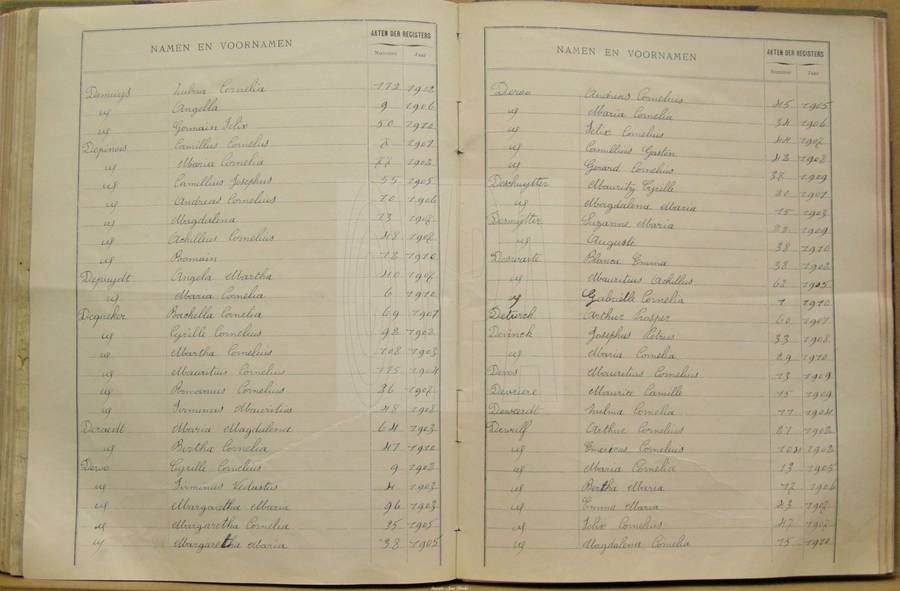 AKTEN DER REGISTERS
NAMEN EN VOORNAMEN
Nummer Jaar
Demuijs Zulma Cornelia 112 1902
id Angella 9 1906
id Germain Felix 50 1910
Depinois Camillius Cornelis 2 1901
id Maria Cornelia 77 1903
id Camillius Josephus 55 1905
id Andreas Cornelius 10 1906
id Magdalena 13 1907
id Achillius Cornelius 48 1907
id Romain 12 1910
Depuydt Angela Martha 40 1907
id Maria Cornelia 6 1910
Dequeker Rachella Cornelia 69 1901
id Cyrille Cornelius 92 1902
id Martha Cornelius 108 1903
id Mauritius Cornelius 115 1904
id Romanus Cornelius 36 1907
id Firminus Mauritius 48 1908
Deraedt Maria Magdalena 64 1903
id Bertha Cornelia 47 1910
Deroo Cyrille Cornelius 9 1902
id Firminus Vedastus 4 1903
id Margaretha Maria 96 1903
id Margaretha Cornelia 35 1905
id Margaretha Maria 38 1905
AKTEN DER REGISTERS
NAMEN EN VOORNAMEN
Nummer Jaar
Deroo Andreas Cornelius 45 1905
id Maria Cornelia 34 1906
id Felix Cornelius 44 1907
id Camillius Gaston 42 1908
id Gerard Cornelius 38 1909
Deschuytter Mauritz Cyrille 20 1901
id Magdalena Maria 15 1903
Desmytter Suzanne Maria 22 1909
id Auguste 38 1910
Deswarte Blanca Emma 38 1902
id Mauritius Achilles 62 1905
id Gabrielle Cornelia 1 1910
Deturck Arthur Prosper 60 1901
Devinck Josephus Petrus 33 1908
id Maria Cornelia 29 1910
Devos Mauritius Cornelius 13 1909
Devriere Maurice Camille 15 1909
Dewaerdt Zulma Cornelia 77 1904
Dewulf Arthur Cornelius 27 1902
id Cornelius 104 1902
id Maria Cornelia 13 1905
id Bertha Maria 12 1906
id Emma Maria 23 1907
id Felix Cornelis 47 1907
id Magdalena Cornelia 15 1910